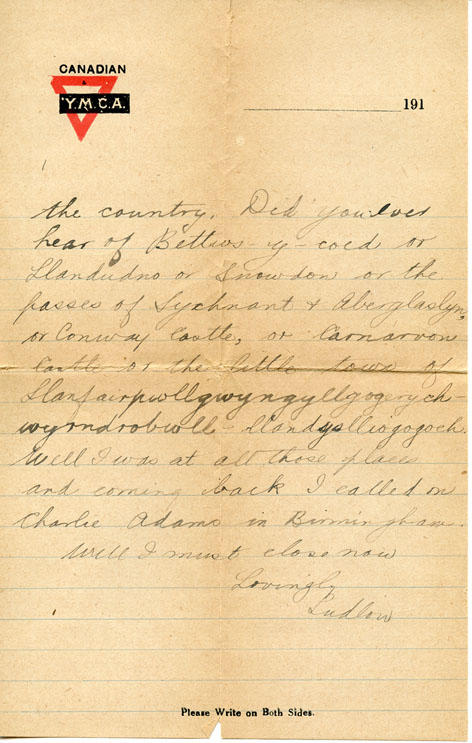 CANADIAN
Y.M.C.A.
191
the country. Did you ever
hear of Bettws-y-coed or
Llandudno or Snowdon or the
passes of Sychnant & Aberglaslyn,
or Conway Castle, or Carnarvon
Castle or the little town of
Llanfairpwllgwyngyllgogerych-
wyrndrobwll-llandyslliogogoch.
Well I was at all those places
and coming back I called on
Charlie Adams in Birmingham.
Well I must close now
Lovingly
Ludlow
Please Write on Both Sides.